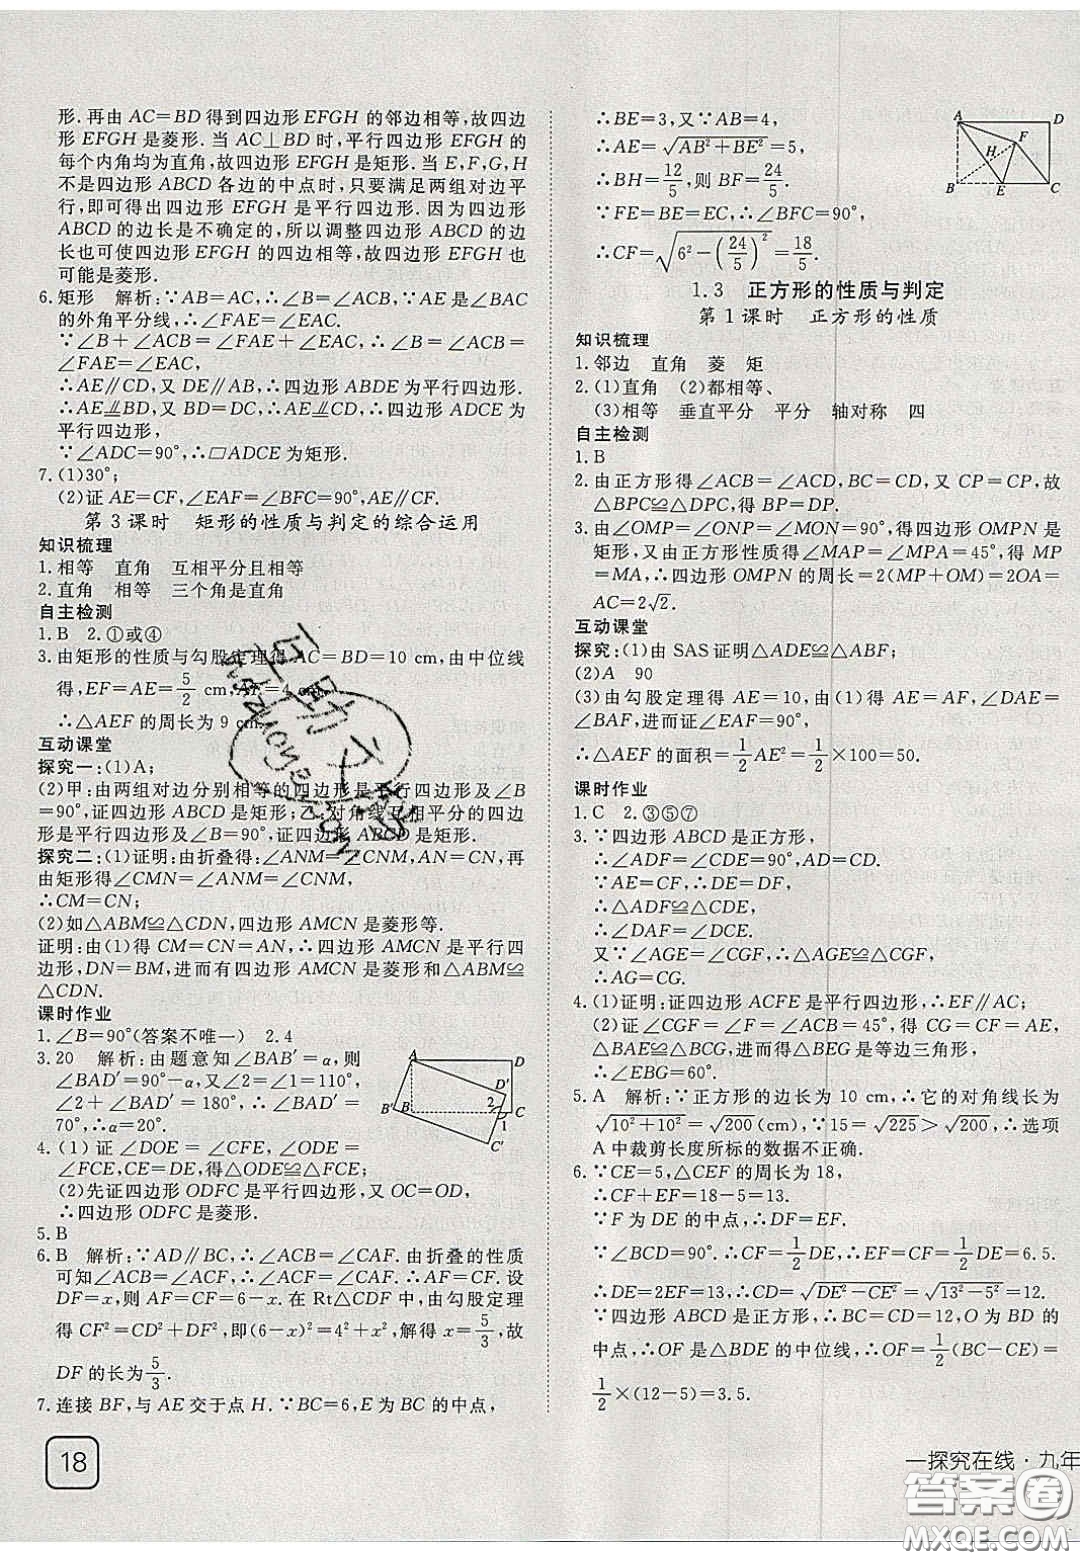 形.再由AC=BD得到四边形EFGH的邻边相等,故四边
形EFGH是菱形.当AC⊥BD时,平行四边形EFGH的
每个内角均为直角,故四边形EFGH是矩形.当E,F,G,H
不是四边形ABCD各边的中点时,只要满足两组对边平
行,即可得出四边形EFGH是平行四边形.因为四边形
ABCD的边长是不确定的,所以调整四边形ABCD的
边长也可使四边形EFGH的四边相等,故四边形EFGH也
可能是菱形.
6.矩形 解析:∵AB=AC,∴∠B=∠ACB.∵AE是∠BAC
的外角平分线,∴∠FAE=∠EAC.
∵∠B+∠ACB=∠FAE+∠EAC,∴∠B=∠ACB=
∠FAE=∠EAC,
∴AE∥CD,又DE∥AB,∴四边形ABDE为平行四边形.
∴AE⫫BD,又BD=DC,∴AE⫫DC,∴四边形ADCE为
平行四边形,
∵∠ADC=90°,∴□ADCE为矩形.
7.(1)30°;
(2)证AE=CF,∠EAF=∠BFC=90°,AE∥CF.
第3课时 矩形的性质与判定的综合运用
知识梳理
1.相等 直角 互相平分且相等
2.直角 相等 三个角是直角
自主检测
1.B 2.①或④
3.由矩形的性质与勾股定理得AC=BD=10 cm,由中位线
得,EF=AE=5/2 cm,AF=4 cm.
∴△AEF的周长为9 cm.
互动课堂
探究一:(1)A;
(2)甲:由两组对边分别相等的四边形是平行四边形及∠B
=90°,证四边形ABCD是矩形;乙:对角线互相平分的四边
形是平行四边形及∠B=90°,证四边形ABCD是矩形.
探究二:(1)证明:由折叠得:∠ANM=∠CNM,再
由矩形得∠CMN=∠ANM=∠CNM,
∴CM=CN;
(2)如△ABM≌△CDN,四边形AMCN是菱形等.
证明:由(1)得CM=CN=AN,∴四边形AMCN是平行四
边形,DN=BM,进而有四边形AMCN是菱形和△ABM≌
△CDN.
课时作业
1.∠B=90°(答案不唯一) 2.4
3.20 解析:由题意知∠BAB′=α,则
∠BAD′=90°-α,又∠2=∠1=110°,
∠2+∠BAD′=180°,∴∠BAD′=
70°,∴α=20°.
A D D′ 2 B′ B 1 C C′
4.(1)证∠DOE=∠CFE,∠ODE=
∠FCE,CE=DE,得△ODE≌△FCE;
(2)先证四边形ODFC是平行四边形,又OC=OD,
∴四边形ODFC是菱形.
5.B
6.B 解析:∵AD∥BC,∴∠ACB=∠CAF.由折叠的性质
可知∠ACB=∠ACF,∴∠ACF=∠CAF,∴AF=CF.设
DF=x,则AF=CF=6-x.在Rt△CDF中,由勾股定理
得CF²=CD²+DF²,即(6-x)²=4²+x²,解得x=5/3,故
DF的长为5/3.
7.连接BF,与AE交于点H.∵BC=6,E为BC的中点,
18
∴BE=3,又∵AB=4,
∴AE=√(AB²+BE²)=5,
∴BH=12/5,则BF=24/5.
∵FE=BE=EC,∴∠BFC=90°,
∴CF=√(6²-(24/5)²)=18/5.
A D F H B E C
1.3 正方形的性质与判定
第1课时 正方形的性质
知识梳理
1.邻边 直角 菱 矩
2.(1)直角 (2)都相等、
(3)相等 垂直平分 平分 轴对称 四
自主检测
1.B
2.由正方形得∠ACB=∠ACD,BC=CD,又CP=CP,故
△BPC≌△DPC,得BP=DP.
3.由∠OMP=∠ONP=∠MON=90°,得四边形OMPN是
矩形,又由正方形性质得∠MAP=∠MPA=45°,得MP
=MA,∴四边形OMPN的周长=2(MP+OM)=2OA=
AC=2√2.
互动课堂
探究:(1)由SAS证明△ADE≌△ABF;
(2)A 90
(3)由勾股定理得AE=10,由(1)得AE=AF,∠DAE=
∠BAF,进而证∠EAF=90°,
∴△AEF的面积=1/2AE²=1/2×100=50.
课时作业
1.C 2.③⑤⑦
3.∵四边形ABCD是正方形,
∴∠ADF=∠CDE=90°,AD=CD.
∵AE=CF,∴DE=DF.
∴△ADF≌△CDE,
∴∠DAF=∠DCE.
又∵∠AGE=∠CGF,∴△AGE≌△CGF,
∴AG=CG.
4.(1)证明:证四边形ACFE是平行四边形,∴EF∥AC;
(2)证∠CGF=∠F=∠ACB=45°,得CG=CF=AE,
△BAE≌△BCG,进而得△BEG是等边三角形,
∴∠EBG=60°.
5.A 解析:∵正方形的边长为10 cm,∴它的对角线长为
√(10²+10²)=√200(cm),∵15=√225>√200,∴选项
A中裁剪长度所标的数据不正确.
6.∵CE=5,△CEF的周长为18,
∴CF+EF=18-5=13.
∵F为DE的中点,∴DF=EF.
∵∠BCD=90°.∴CF=1/2DE,∴EF=CF=1/2DE=6.5.
∴DE=2EF=13,∴CD=√(DE²-CE²)=√(13²-5²)=12.
∵四边形ABCD是正方形,∴BC=CD=12,O为BD的
中点,∴OF是△BDE的中位线,∴OF=1/2(BC-CE)=
1/2×(12-5)=3.5.
一探究在线·九年
答案圈
MXQE.COM